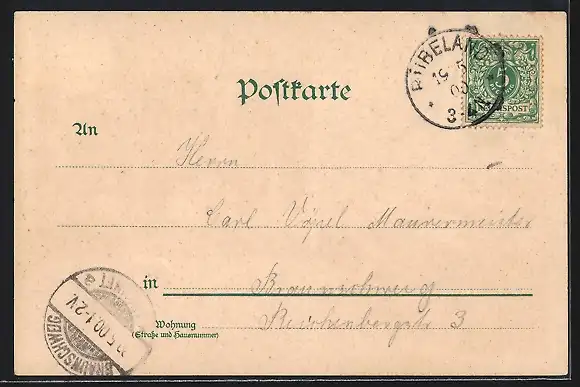 RÜBELAND
19 5 00
3-4N
5
REICHSPOST
Postkarte
An
Herrn
Carl Vogel Maurermeister
in Braunschweig
Wohnung Reichenbergstr 3
(Straße und Hausnummer)
BRAUNSCHWEIG
5.00.1-2V.
a